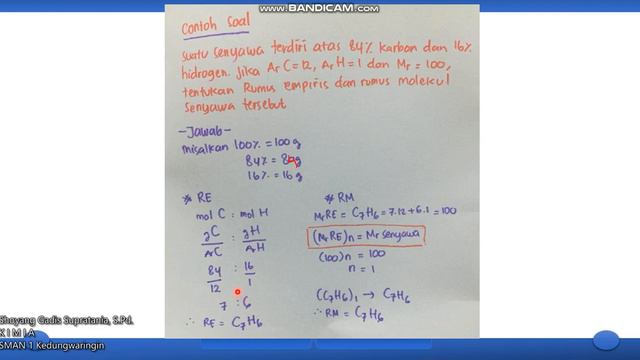 WWW.BANDICAM.COM
Contoh Soal
Suatu Senyawa terdiri atas 84% karbon dan 16%
hidrogen. Jika Ar C=12, Ar H=1 dan Mr = 100,
tentukan Rumus empiris dan rumus molekul
senyawa tersebut
-Jawab-
Misalkan 100% = 100 g
84% = 84 g
16% = 16 g
* RE
mol C : mol H
gC : gH
ArC ArH
84 : 16
12 1
7 : 6
∴ RE = C7H6
* RM
Mr RE = C7H6 = 7.12 + 6.1 = 100
(Mr RE)n = Mr senyawa
(100)n = 100
n = 1
(C7H6)1 → C7H6
∴ RM = C7H6
Shoyang Gadis Supratania, S.Pd.
K I M I A
SMAN 1 Kedungwaringin